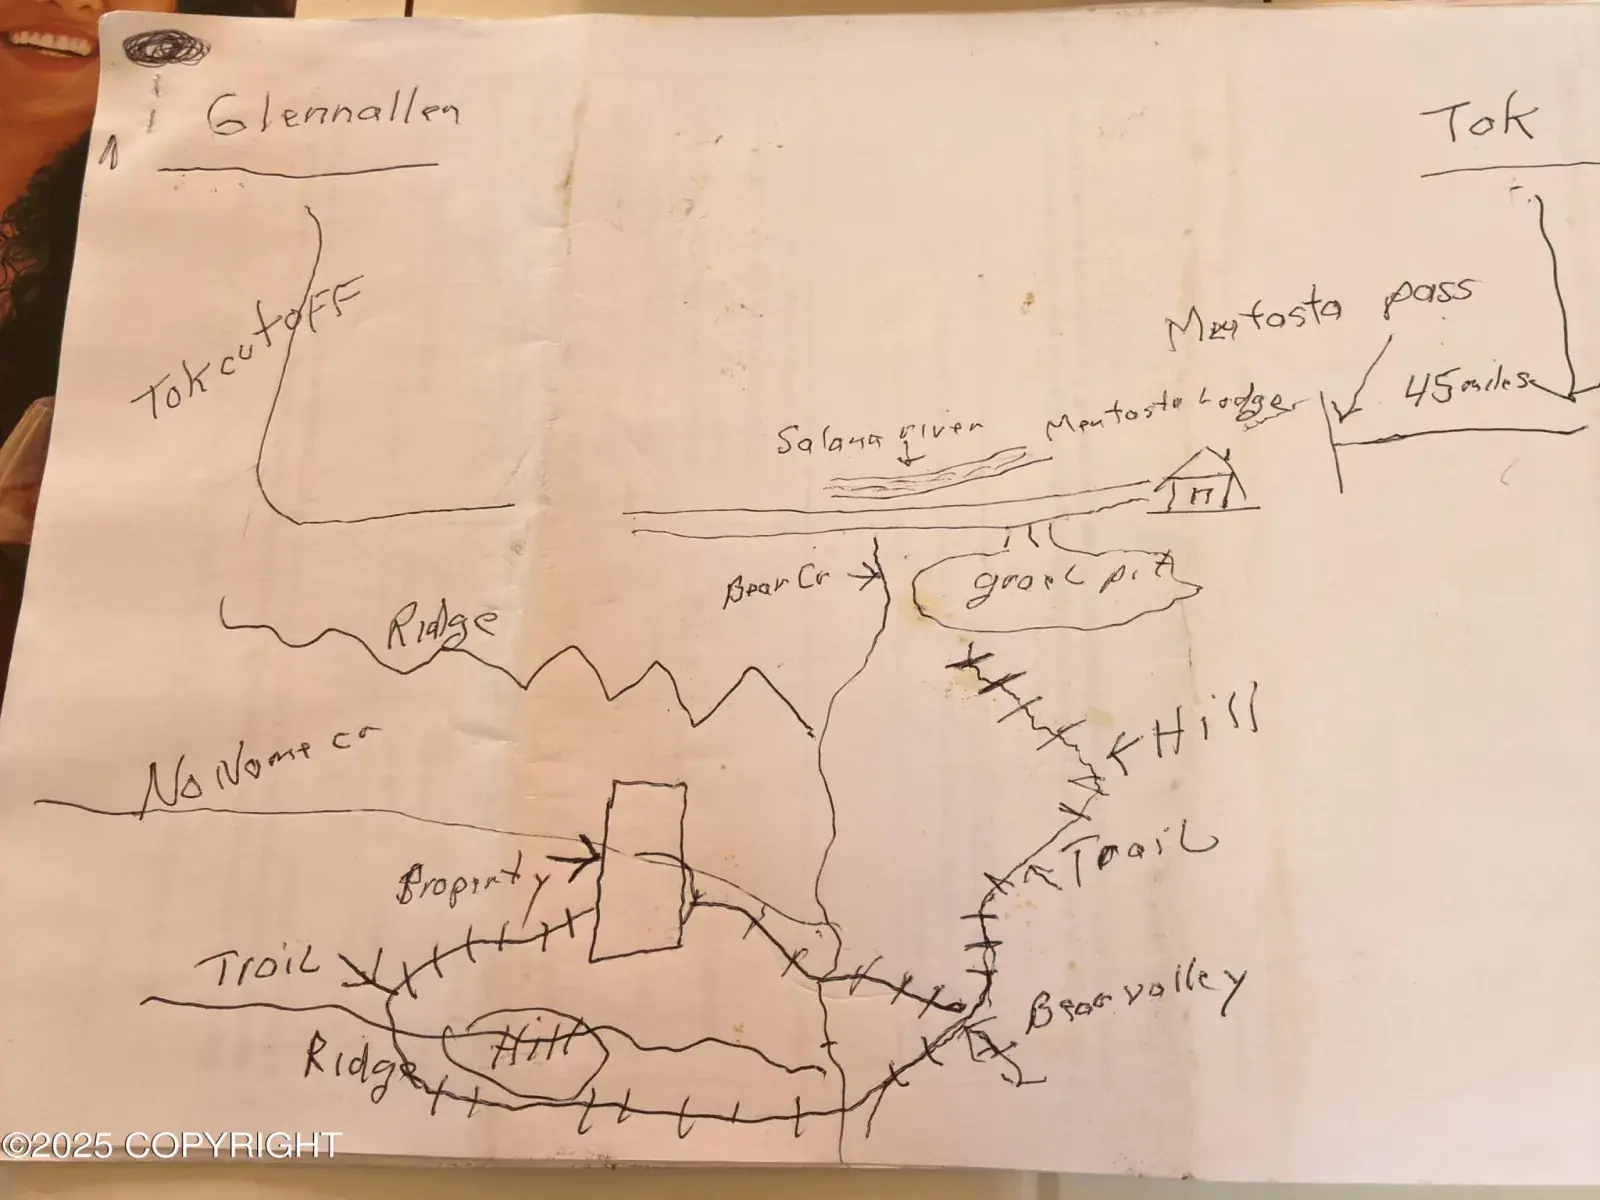 Glennallen
Tok
Tok cutoff
Mentasta pass
45 miles
Salana river
Mentasta Lodge
Bear Cr
gravel pit
Ridge
Hill
No Name cr
Trail
Property
Trail
Bear valley
Hill
Ridge
©2025 COPYRIGHT